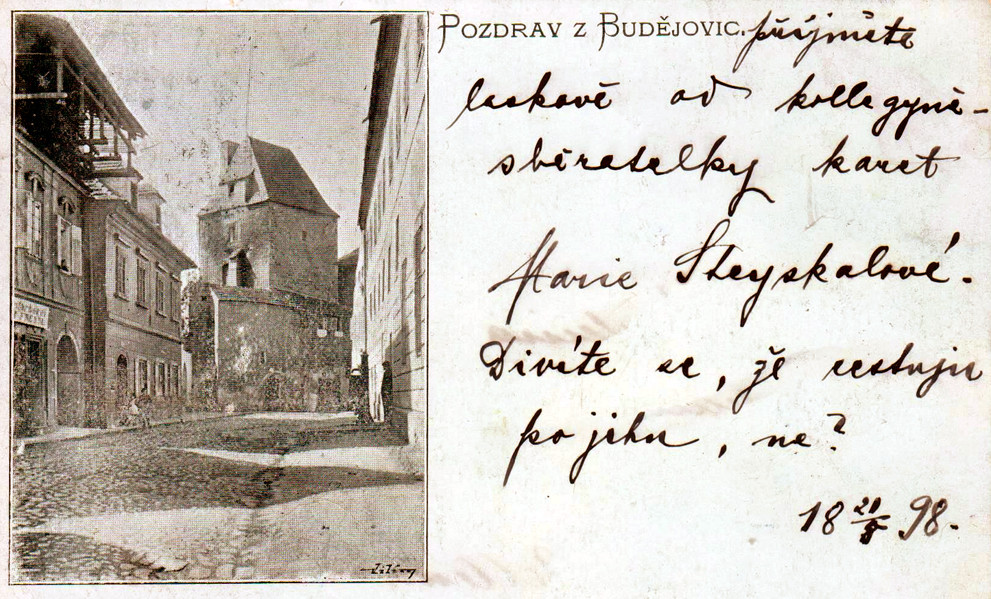 Pozdrav z Budějovic. přijměte
laskavě od kollegyně-
sběratelky karet
Marie Steyskalové.
Divíte se, že cestuju
po jihu, ne?
18 20/8 98.